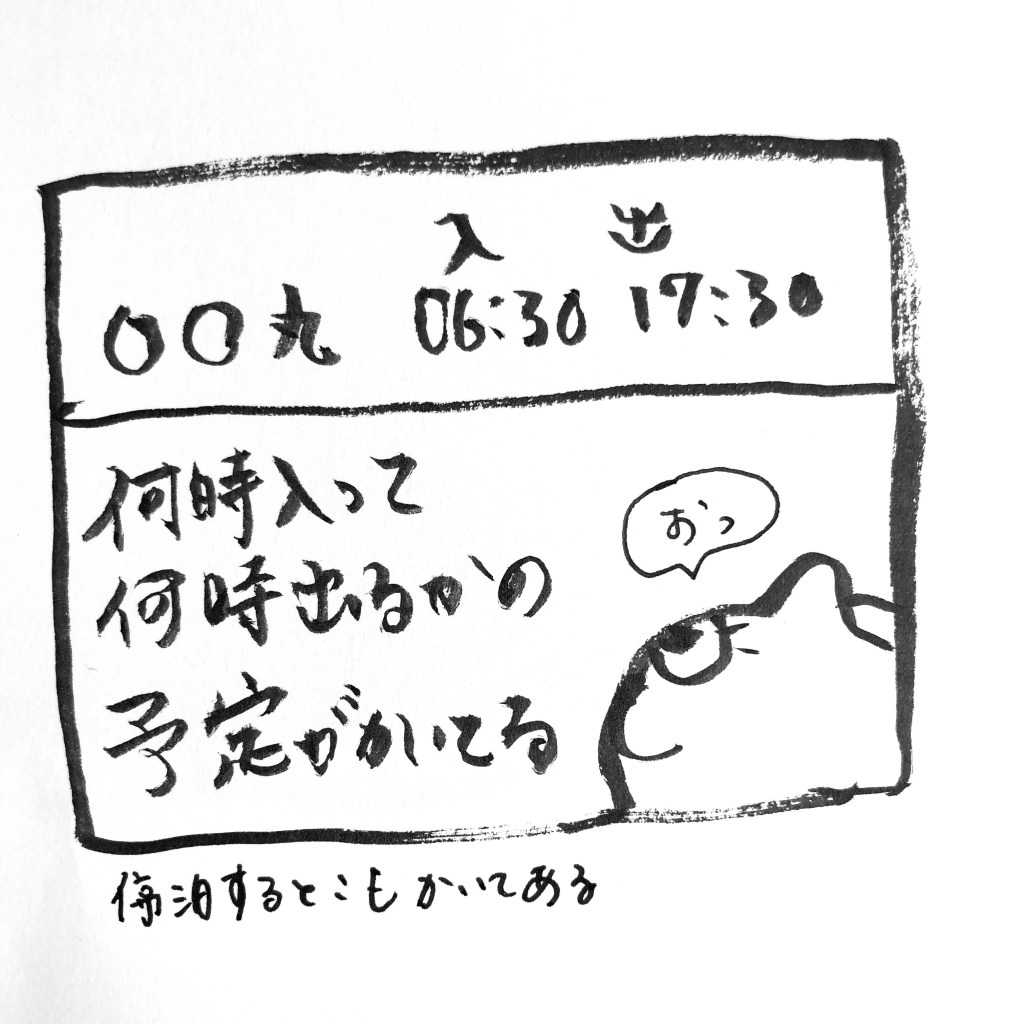 入 出
〇〇丸 06:30 17:30
何時入って
何時出るかの
予定がかいてる
おっ
停泊するとこもかいてある